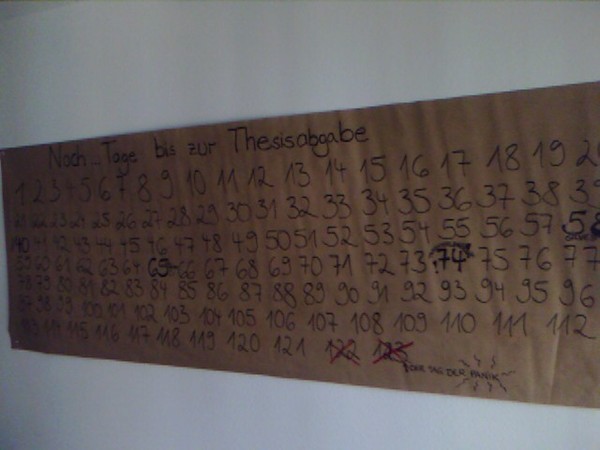 Noch _ Tage bis zur Thesisabgabe
1 2 3 4 5 6 7 8 9 10 11 12 13 14 15 16 17 18 19
21 22 23 24 25 26 27 28 29 30 31 32 33 34 35 36 37 38 39
40 41 42 43 44 45 46 47 48 49 50 51 52 53 54 55 56 57 58
59 60 61 62 63 64 65 66 67 68 69 70 71 72 73 74 75 76 77
78 79 80 81 82 83 84 85 86 87 88 89 90 91 92 93 94 95 96
97 98 99 100 101 102 103 104 105 106 107 108 109 110 111 112
113 114 115 116 117 118 119 120 121 122 123
DER TAG DER PANIK